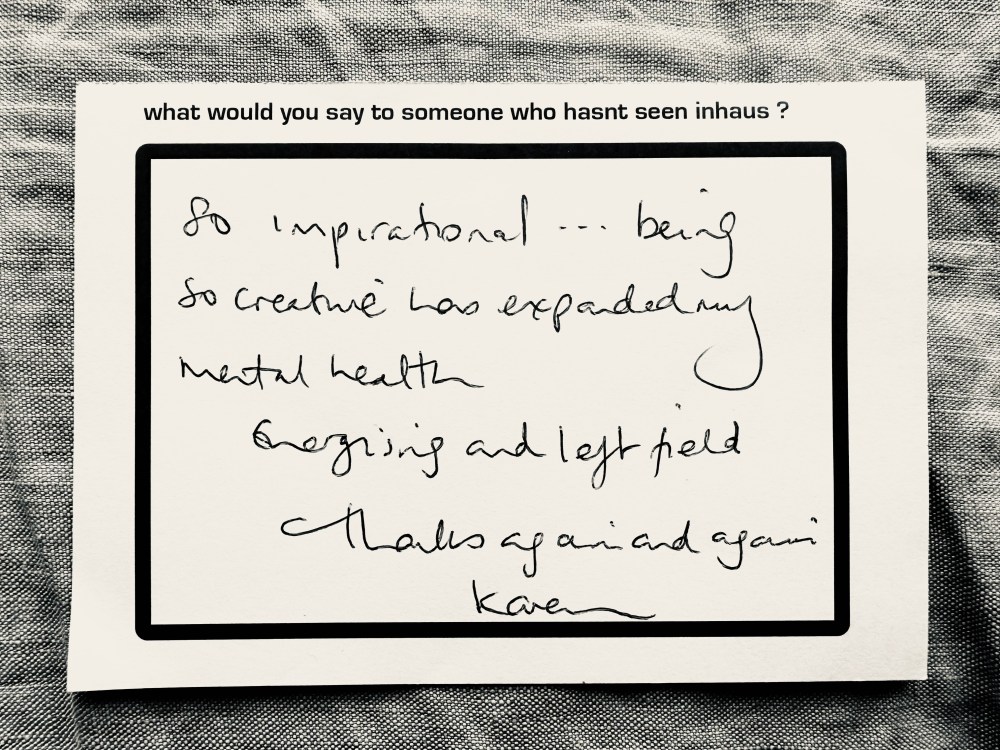 what would you say to someone who hasnt seen inhaus ?
So inpirational ... being
so creative has expanded my
mental health
Energising and left field
Thanks again and again
Karen